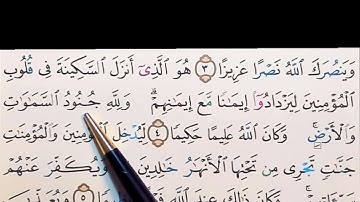 وَيَنصُرَكَ ٱللَّهُ نَصْرًا عَزِيزًا ٣ هُوَ ٱلَّذِىٓ أَنزَلَ ٱلسَّكِينَةَ فِى قُلُوبِ
ٱلْمُؤْمِنِينَ لِيَزْدَادُوٓا۟ إِيمَٰنًا مَّعَ إِيمَٰنِهِمْ ۗ وَلِلَّهِ جُنُودُ ٱلسَّمَٰوَٰتِ
وَٱلْأَرْضِ ۚ وَكَانَ ٱللَّهُ عَلِيمًا حَكِيمًا ٤ لِّيُدْخِلَ ٱلْمُؤْمِنِينَ وَٱلْمُؤْمِنَٰتِ
جَنَّٰتٍ تَجْرِى مِن تَحْتِهَا ٱلْأَنْهَٰرُ خَٰلِدِينَ فِيهَا وَيُكَفِّرَ عَنْهُمْ
سَيِّـَٔاتِهِمْ ۚ وَكَانَ ذَٰلِكَ عِندَ ٱللَّهِ